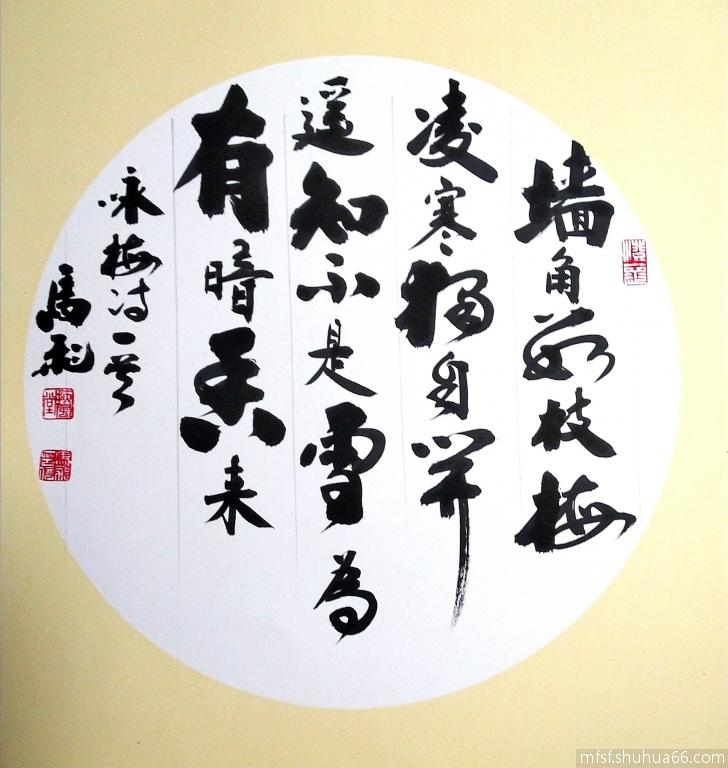 墙角数枝梅
凌寒独自開
遥知不是雪為
有暗香来
咏梅诗一首
馬
mfsf.shuhua66.com